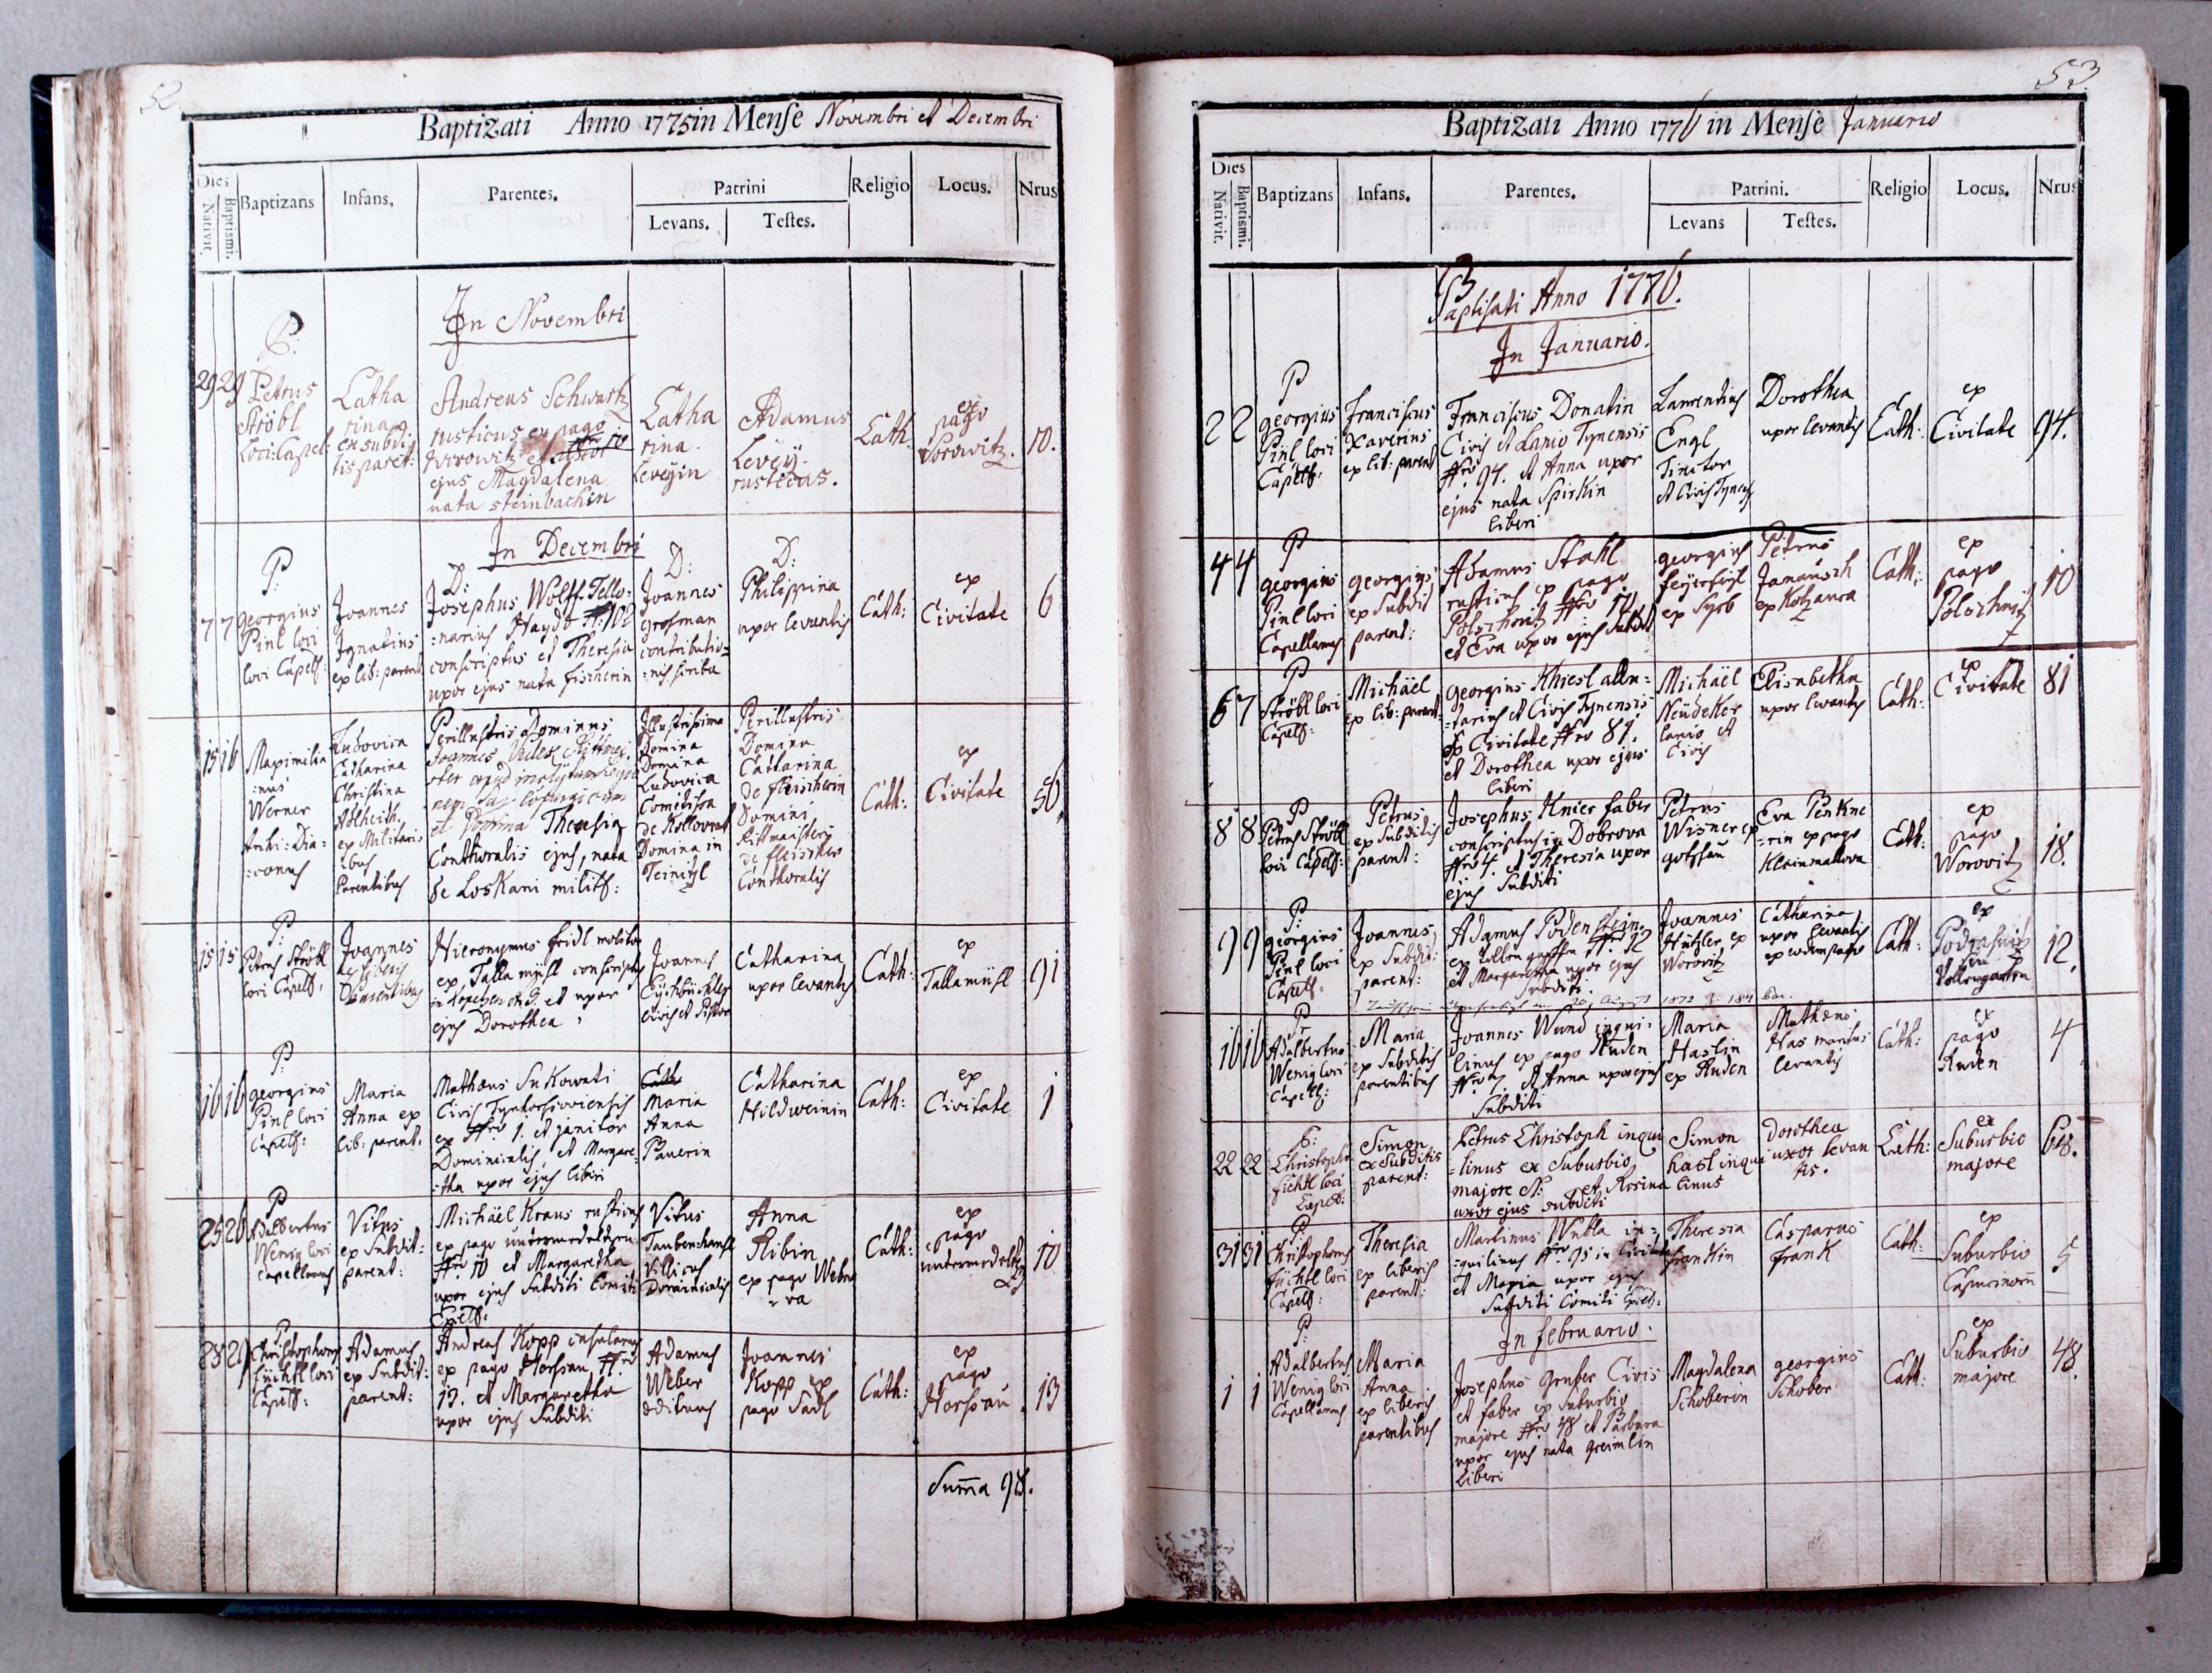 52.
Baptizati Anno 1775 in Menſe Novembri et Decembri
Dies
Nativit.
Baptismi.
Baptizans
Infans.
Parentes.
Patrini
Levans.
Teſtes.
Religio
Locus.
Nrus
In Novembri
29 29
P:
Petrus
Ströbl
Loci: Capel:
Catha
rina
ex subdi
tis parēt:
Andreas Schwartz
rusticus ex pago
Worowitz
ejus Magdalena
nata steinbachin
Catha
rina
Leveÿin
Adamus
Leveÿ
rusticus.
Cath.
ex
pago
Vorowitz.
10.
In Decembri
7 7
P:
georgius
Pinl loci
loci Capell:
Joannes
Ignatius
ex lib: parent
D:
Josephus Wolff Tello:
:narius Haydo N: 102
conscriptus et Theresia
uxor ejus nata fischerin
D:
Joannes
grosman
contributio=
:nis scriba
D:
Philippina
uxor levantis
Cath:
ex
Civitate
6
15 16
Maximilia
:nus
Werner
Archi: Dia=
:conus
Ludovica
Catharina
Christina
Adlheith.
ex Militari
:bus
Parentibus
Perillustris Dominus
Joannes
et Domina Theresia
Conthoralis ejus, nata
de Loskani milits:
Illustrissima
Domina
Domina
Ludovica
Comitissa
de Kollovrat
Domina in
Teinitzl
Perillustris
Domina
Catharina
de fleischerin
Domini
Ritmaisteri
de fleischer
Conthoralis
Cath:
ex
Civitate
56.
15 15
P:
Petrus Ströbl
loci Capell:
Joannes
ex liberis
Parentibus
Hieronymus fridl molitor
ex Tallamühl conscriptus
in
ejus Dorothea
Joannes
Eÿchbüchler
Civis et Pistor
Catharina
uxor levantis
Cath:
ex
Tallamühl
91
16 16
P:
georgius
Pinl loci
Capell:
Maria
Anna ex
lib: parent:
Mathæus Sukowati
Civis Tynhorsoviensis
ex Nro 1. et janitor
Dominicalis et Margare=
:tha uxor ejus liberi
Maria
Anna
Paverin
Catharina
Hildweinin
Cath:
ex
Civitate
1
25 26
P
Adalbertus
Wenig loci
Capellanus
Vitus
ex Subdit:
parent:
Michäel Kraus rusticus
ex pago
Nro. 10 et Margaretha
uxor ejus Subditi Comiti
Capell:
Vitus
Taubenhansl
Villicus
Dominicalis
Anna
Ribin
ex pago Webro
:va
Cath:
ex
pago
10
28 29
P:
Christophorus
füchtl loci
Capell:
Adamus
ex Subdit:
parent:
Andreas Kopp
ex pago Horssau Nro
13. et Margaretha
uxor ejus Subditi
Adamus
Weber
ædituus
Joannes
Kopp ex
pago Sadl
Cath:
ex
pago
Horssau.
13
Sum̄a 98.
53.
Baptizati Anno 1776 in Menſe Januario
Dies
Nativit.
Baptismi.
Baptizans
Infans.
Parentes.
Patrini.
Levans
Teſtes.
Religio
Locus.
Nrus
Baptisati Anno 1776.
In Januario.
2 2
P
georgius
Pinl loci
Capell:
Franciscus
Xaverius
ex lib: parent
Franciscus Donatin
Civis et Lanio Tynensis
Nro. 94. et Anna uxor
ejus nata Spirkin
liberi
Laurentius
Engl
Tinctor
et Civis Tynens
Dorothea
uxor levantis
Cath:
ex
Civitate
94.
4 4
P
georgius
Pinl loci
Capellanus
georgius
ex Subdit
parent:
Adamus Stahl
rusticus ex pago
Polschnitz Nro 10
et Eva uxor ejus Subdit
georgius
feÿersigl
ex Syrb
Petrus
Janausch
ex Kotzaura
Cath:
ex
pago
Polschnitz
10
6 7
P
Ströbl loci
Capell:
Michäel
ex lib: parent:
georgius Khiesl allu=
:tarius et Civis Tynensis
ex Civitate Nro 81.
et Dorothea uxor ejus
liberi
Michäel
Neüdeker
lanio et
Civis
Elisabetha
uxor levantis
Cath:
ex
Civitate
81
8 8
P
Petrus Ströbl
loci Capell:
Petrus
ex Subditis
parent:
Josephus Knier faber
conscriptus in Dobrova
Nro 4. et Theresia uxor
ejus Subditi
Petrus
Wisner ex
gotzsau
Eva Penkne
:rin ex pago
Kleinmallova
Cath:
ex
pago
Worovitz
18.
9 9
P:
georgius
Pinl loci
Capell:
Joannes
ex Subdit:
parent:
Adamus Podenstein
Nro. 12
et Margaretha uxor ejus
subditi.
Joannes
Hützler ex
Worovitz
Catharina
uxor levantis
ex eodem pago
Cath:
ex
12.
16 16
P
Adalbertus
Wenig loci
Capell:
Maria
ex Subditis
parentibus
Joannes Wund inqui=
linus ex pago Auden
Nro 4. et Anna uxor ejus
Subditi
Maria
Haslin
ex Auden
Mathæus
Has maritus
levantis
Cath:
ex
pago
Auden
4
22 22
P:
Christopho
fichtl loci
Capell:
Simon
ex Subditis
parent:
Petrus Christoph inqui
=linus ex Suburbio
majore N: et Rosina
uxor ejus subditi
Simon
hasl inqui
linus
Dorothea
uxor levan
tis.
Cath:
ex
Suburbio
majore
68.
31 31
P:
Christophorus
füchtl loci
Capell:
Theresia
ex liberis
parent:
Martinus Wubla in=
:quilinus Nro. 95 in Civitate
et Maria uxor ejus
Subditi Comiti
Theresia
frankin
Casparus
frank
Cath:
ex
Suburbio
Capucinorū
5
In februario.
1 1
P:
Adalbertus
Wenig loci
Capellanus
Maria
Anna
ex liberis
parentibus
Josephus gruber Civis
et faber ex Suburbio
majore Nro 48 et Barbara
uxor ejus nata greimlin
liberi
Magdalena
Schoberin
georgius
Schober
Cath:
ex
Suburbio
majore
48.